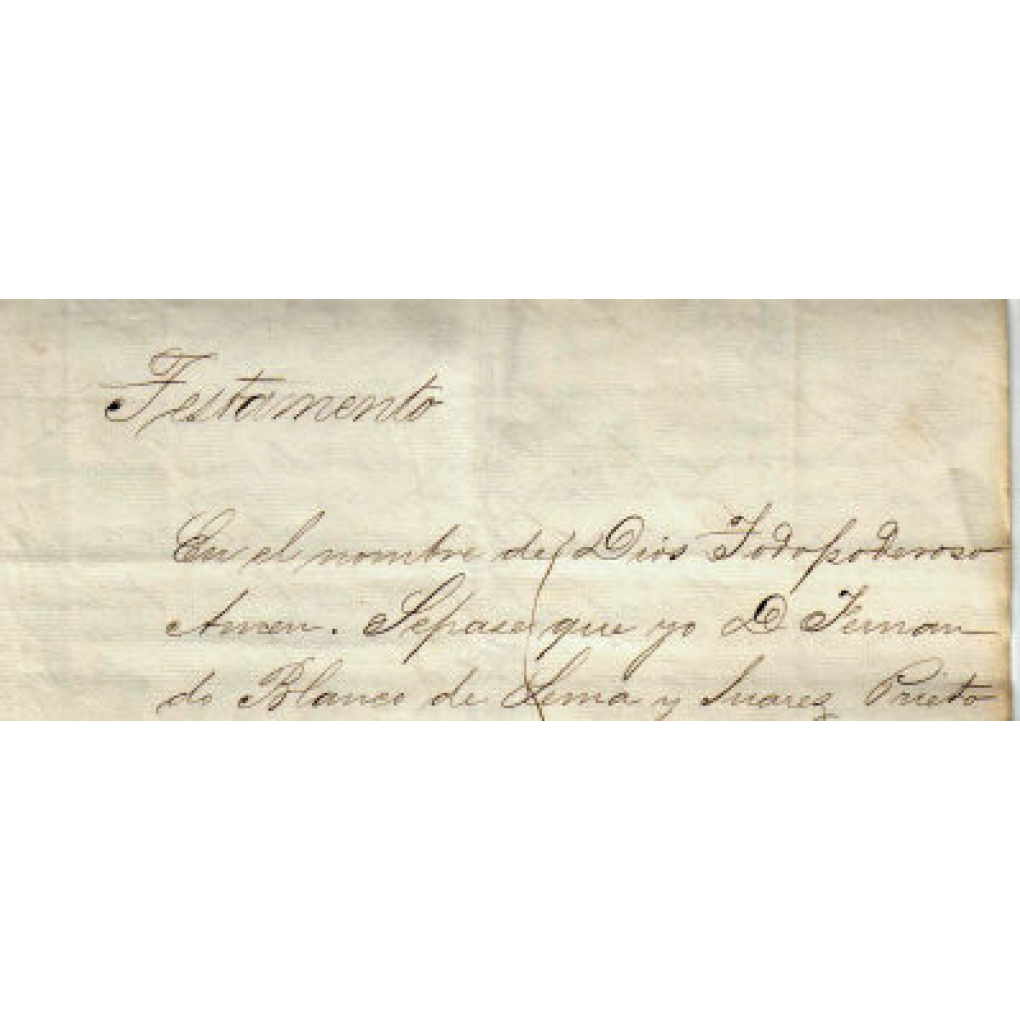 Testamento
En el nombre de Dios Todopoderoso
Amen. Sepase que yo D Fernan
do Blanco de Lema y Suarez Prieto